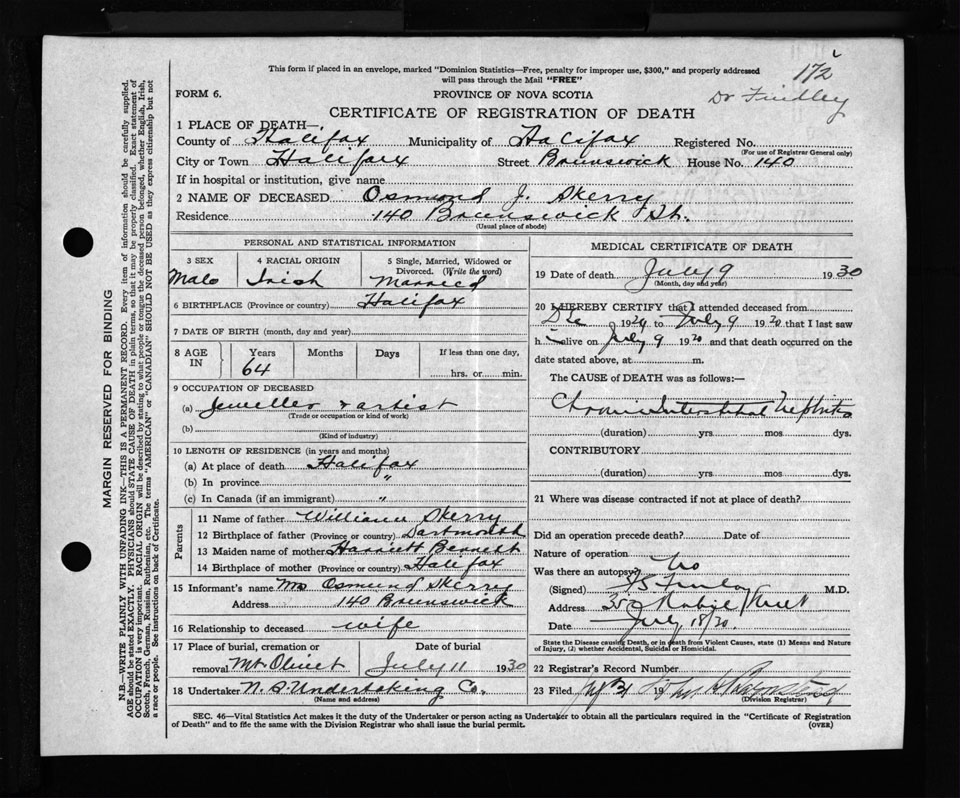 This form if placed in an envelope, marked "Dominion Statistics—Free, penalty for improper use, $300," and properly addressed
will pass through the Mail "FREE"
172
Dr Findley
FORM 6.
PROVINCE OF NOVA SCOTIA
CERTIFICATE OF REGISTRATION OF DEATH
1 PLACE OF DEATH—
County of Halifax Municipality of Halifax Registered No.
(For use of Registrar General only)
City or Town Halifax Street Brunswick House No. 140
If in hospital or institution, give name
2 NAME OF DECEASED Osmund J. Skerry
Residence 140 Brunswick St.
(Usual place of abode)
PERSONAL AND STATISTICAL INFORMATION
3 SEX 4 RACIAL ORIGIN 5 Single, Married, Widowed or
Divorced. (Write the word)
Male Irish Married
6 BIRTHPLACE (Province or country) Halifax
7 DATE OF BIRTH (month, day and year)
8 AGE IN Years Months Days If less than one day,
64 hrs. or min.
9 OCCUPATION OF DECEASED
(a) Jeweller & artist
(Trade or occupation or kind of work)
(b)
(Kind of industry)
10 LENGTH OF RESIDENCE (in years and months)
(a) At place of death Halifax
(b) In province "
(c) In Canada (if an immigrant) "
Parents
11 Name of father William Skerry
12 Birthplace of father (Province or country) Dartmouth
13 Maiden name of mother Harriett Bennett
14 Birthplace of mother (Province or country) Halifax
15 Informant's name Mrs Osmund Skerry
Address 140 Brunswick
16 Relationship to deceased wife
17 Place of burial, cremation or
removal Mt Olivet July 11 1930
18 Undertaker N.S Undertaking Co.
(Name and address)
MEDICAL CERTIFICATE OF DEATH
19 Date of death July 9 1930
(Month, day and year)
20 I HEREBY CERTIFY that I attended deceased from
1929 to July 9 1930 that I last saw
h alive on July 9 1930 and that death occurred on the
date stated above, at m.
The CAUSE OF DEATH was as follows:—
Chronic Interstitial Nephritis
(duration) yrs mos dys.
CONTRIBUTORY
(duration) yrs mos dys.
21 Where was disease contracted if not at place of death?
Did an operation precede death? Date of
Nature of operation
Was there an autopsy? No
(Signed) M.D.
Address Street
Date July 18/30.
State the Disease causing Death, or in death from Violent Causes, state (1) Means and Nature
of Injury, (2) whether Accidental, Suicidal or Homicidal.
22 Registrar's Record Number
23 Filed 19
(Division Registrar)
SEC. 46—Vital Statistics Act makes it the duty of the Undertaker or person acting as Undertaker to obtain all the particulars required in the "Certificate of Registration
of Death" and to file the same with the Division Registrar who shall issue the burial permit. (OVER)
MARGIN RESERVED FOR BINDING
N.B.—WRITE PLAINLY WITH UNFADING INK—THIS IS A PERMANENT RECORD. Every item of information should be carefully supplied.
AGE should be stated EXACTLY. PHYSICIANS should STATE CAUSE OF DEATH in plain terms, so that it may be properly classified. Exact statement of
OCCUPATION is very important. RACIAL ORIGIN will be described by stating to what people or tongue the deceased person belonged, whether English, Irish,
Scotch, French, German, Russian, Ruthenian, etc. The terms "AMERICAN" or "CANADIAN" SHOULD NOT BE USED as they express citizenship but not
a race or people. See instructions on back of Certificate.